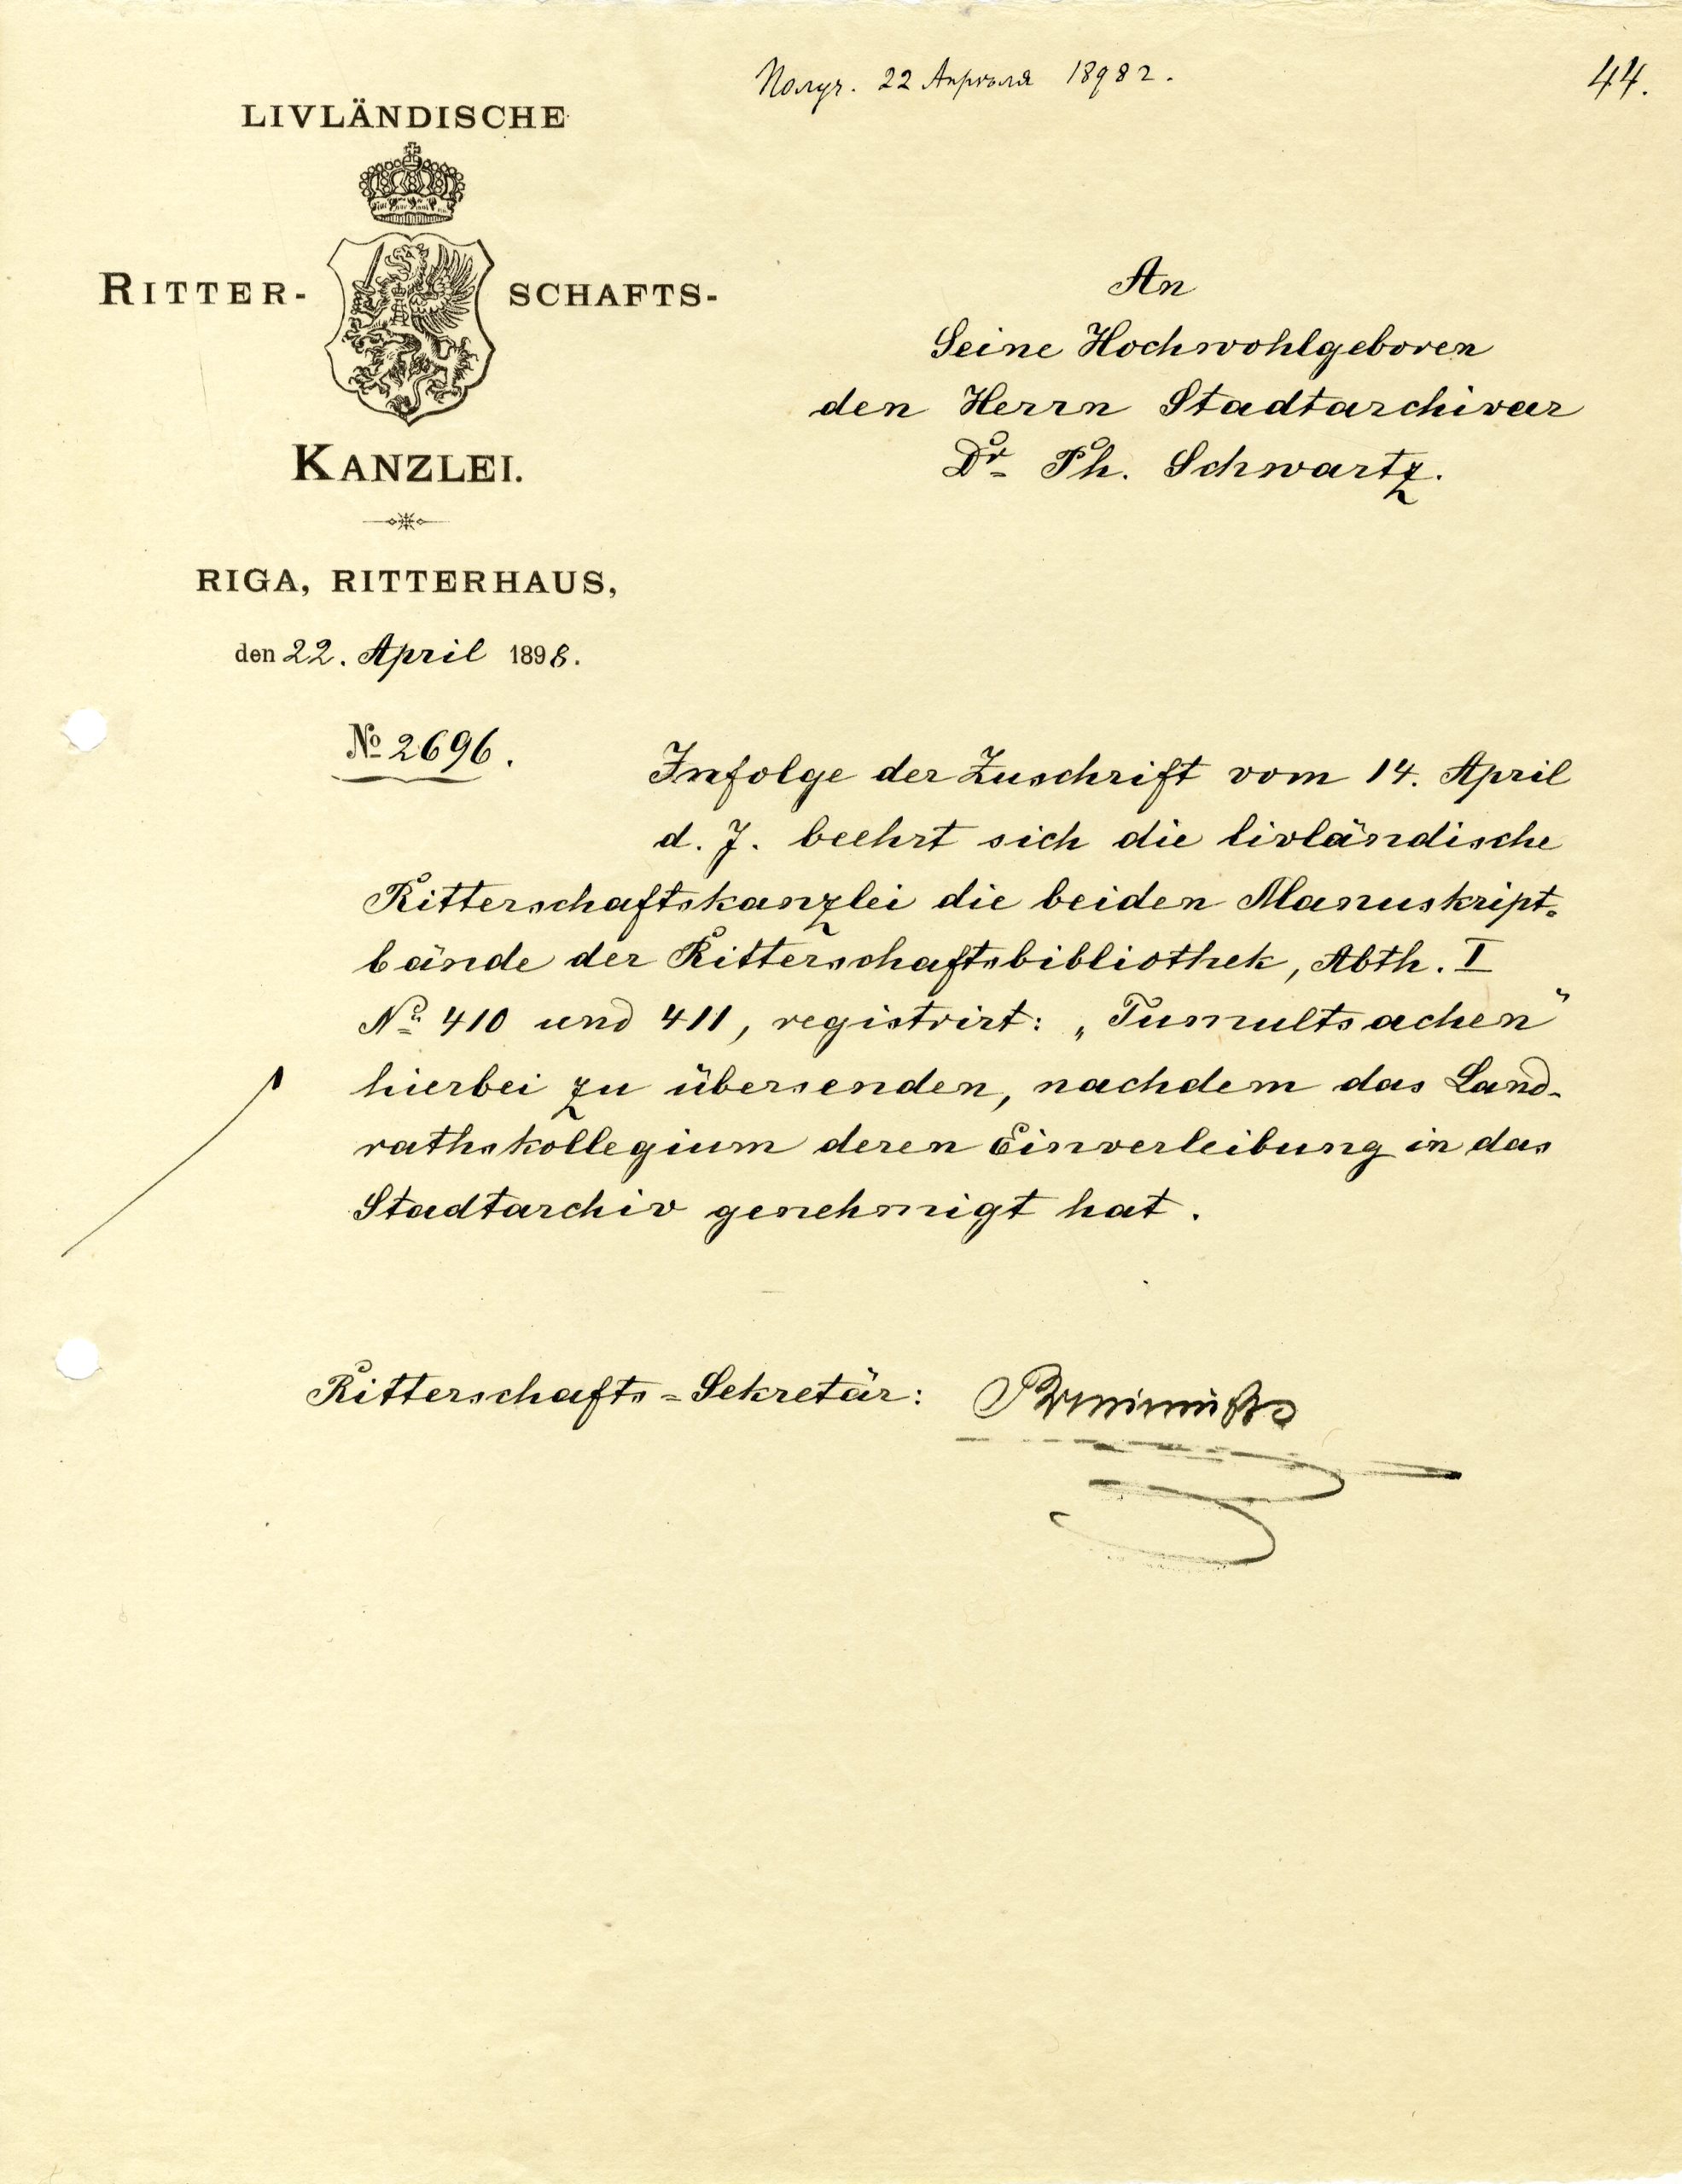 Получ. 22 Апрѣля 1898 г.
44.
LIVLÄNDISCHE
RITTER-SCHAFTS-
KANZLEI.
RIGA, RITTERHAUS,
den 22. April 1898.
№ 2696.
An
Seine Hochwohlgeboren
den Herrn Stadtarchivar
Dr Ph. Schwartz.
Infolge der Zuschrift vom 14. April
d. J. beehrt sich die livländische
Ritterschaftskanzlei die beiden Manuskript-
bände der Ritterschaftsbibliothek, Abth. I
No 410 und 411, registrirt: „Tumultsachen"
hierbei zu übersenden, nachdem das Land-
rathskollegium deren Einverleibung in das
Stadtarchiv genehmigt hat.
Ritterschafts-Sekretär: